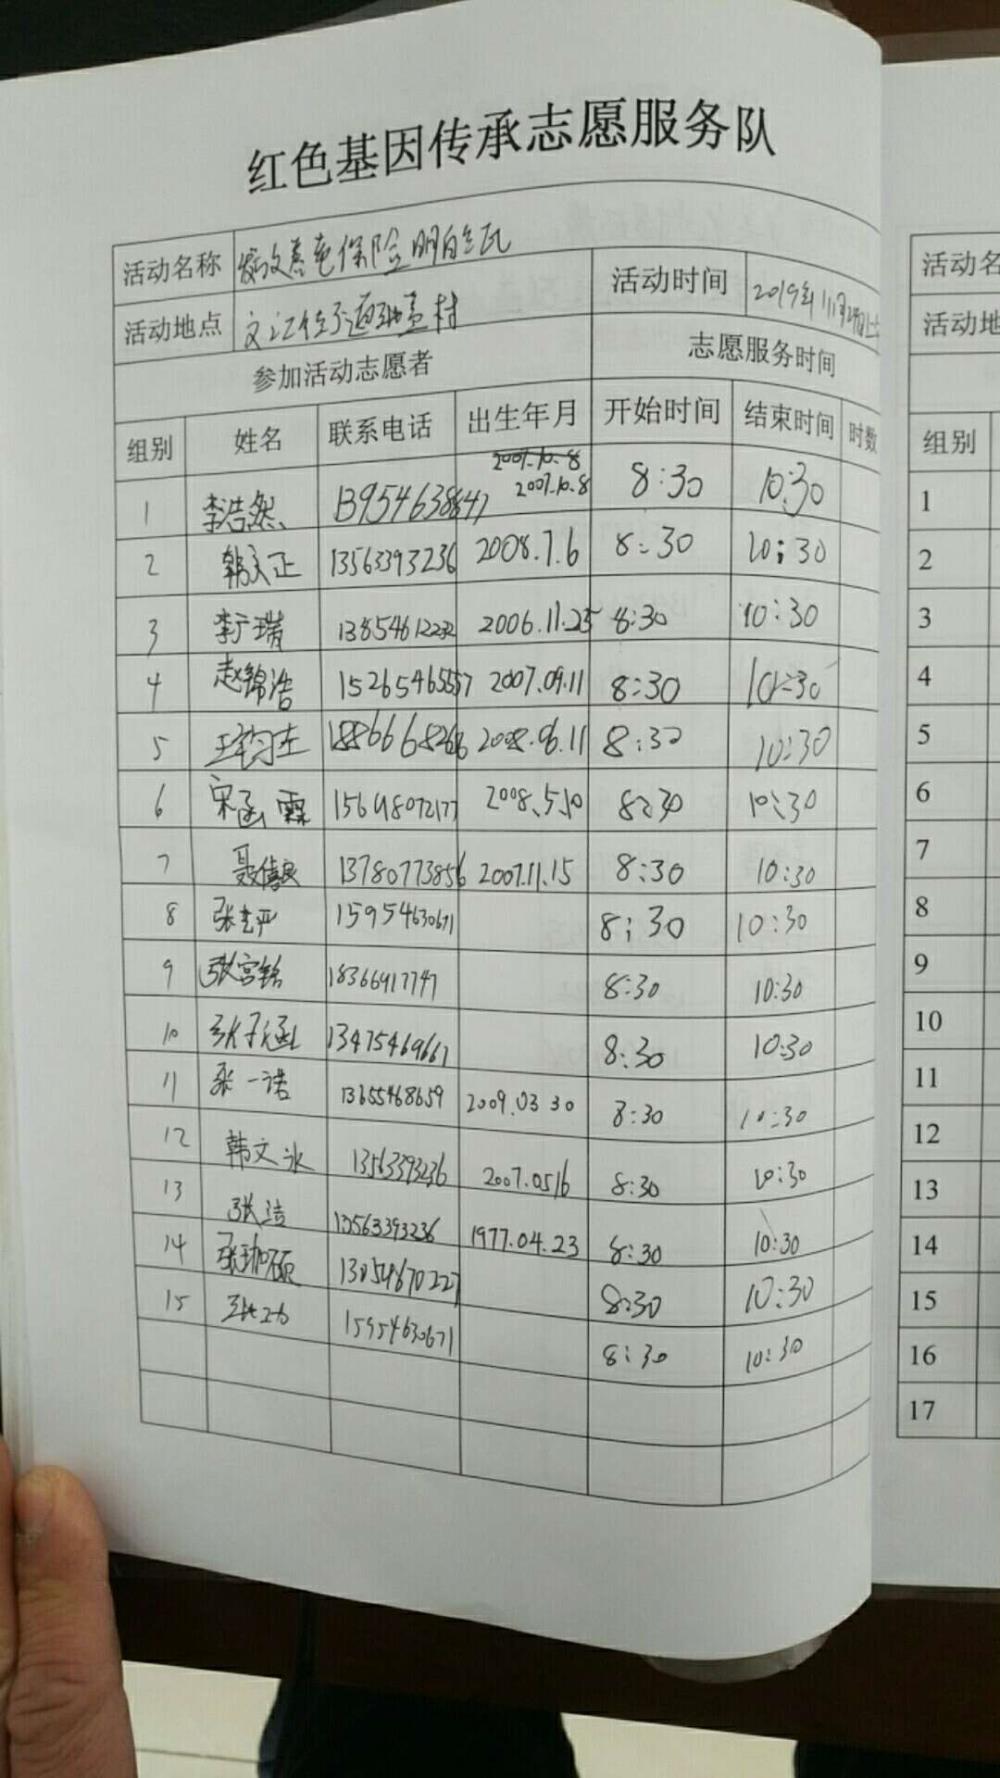 红色基因传承志愿服务队
活动名称 保险明白纸 活动时间 2019年11月
活动地点 村
参加活动志愿者 志愿服务时间
组别 姓名 联系电话 出生年月 开始时间 结束时间 时数
2007.10.8
1 李浩然 13954638847 2007.10.8 8:30 10:30
2 韩文正 13563393236 2008.7.6 8:30 10:30
3 李子瑞 13854612232 2006.11.25 8:30 10:30
4 赵锦浩 15265465557 2007.09.11 8:30 10:30
5 2008.06.11 8:30 10:30
6 宋函霖 15698072177 2008.5.10 8:30 10:30
7 聂信良 13780773856 2007.11.15 8:30 10:30
8 15954630671 8:30 10:30
9 张宫铭 18366917747 8:30 10:30
10 张子涵 13475469661 8:30 10:30
11 张一诺 13655468659 2009.03 30 8:30 10:30
12 韩文冰 13563393236 2007.0516 8:30 10:30
13 张洁 13563393236 1977.04.23 8:30 10:30
14 张珈硕 13054670227 8:30 10:30
15 15954630671 8:30 10:30
活动名
活动地
组别
1
2
3
4
5
6
7
8
9
10
11
12
13
14
15
16
17